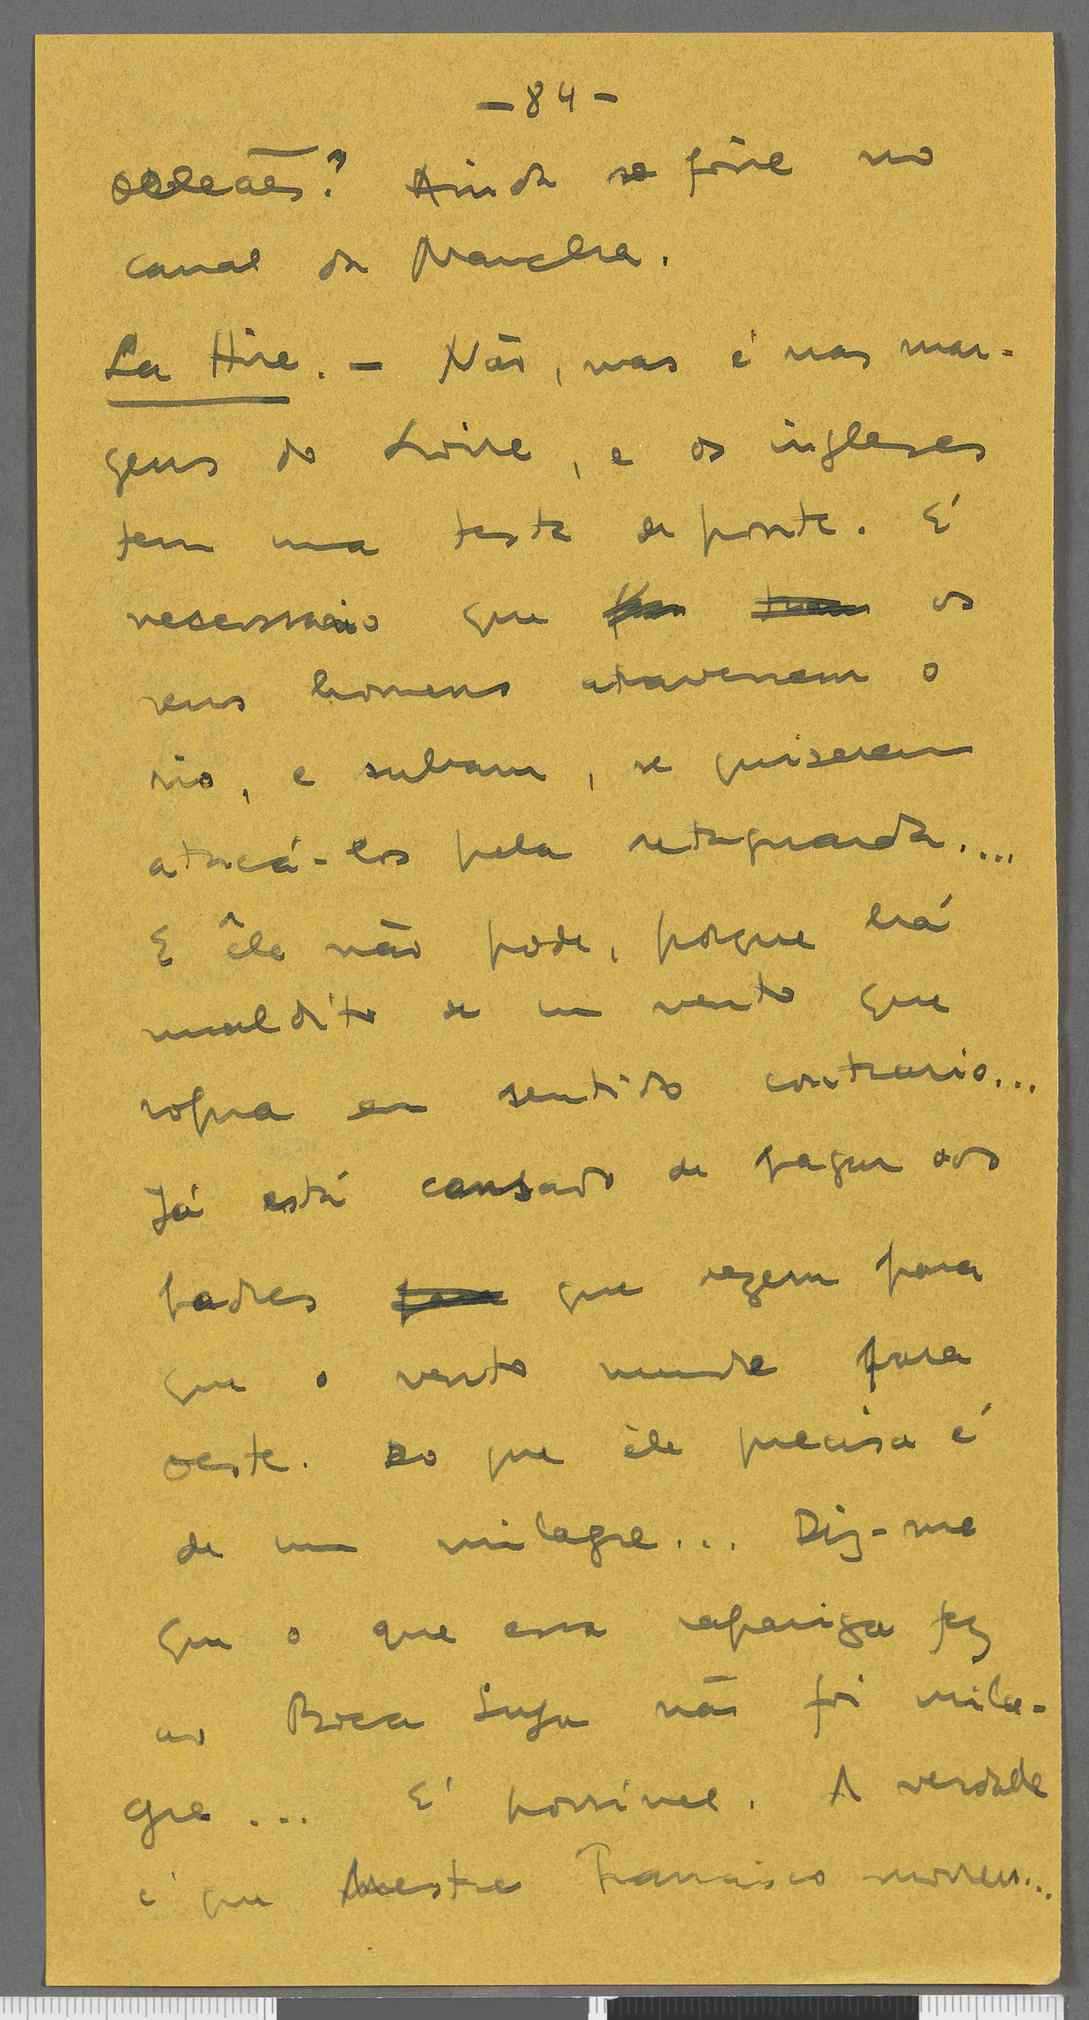 - 84 -
Orleães? Ainda se fôsse no
canal da Mancha.
La Hire. - Não, mas é nas mar-
gens do Loire, e os ingleses
tem uma testa de ponte. É
necessario que os
seus homens atravessem o
rio, e subam, se quiserem
atacá-los pela retaguarda....
E êle não pode, porque há
maldito de um vento que
sopra em sentido contrario...
Já está cansado de pagar aos
padres que rezem para
que o vento mude para
oeste. Do que êle precisa é
de um milagre... Diz-me
que o que essa rapariga fez
ao Boca Suja não foi mila-
gre... É possivel. A verdade
é que Mestre Francisco morreu...